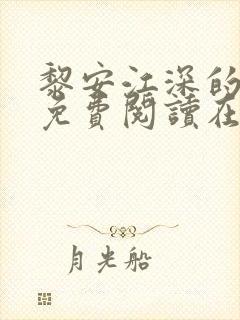 黎安江深的
免費閱讀在
月光船